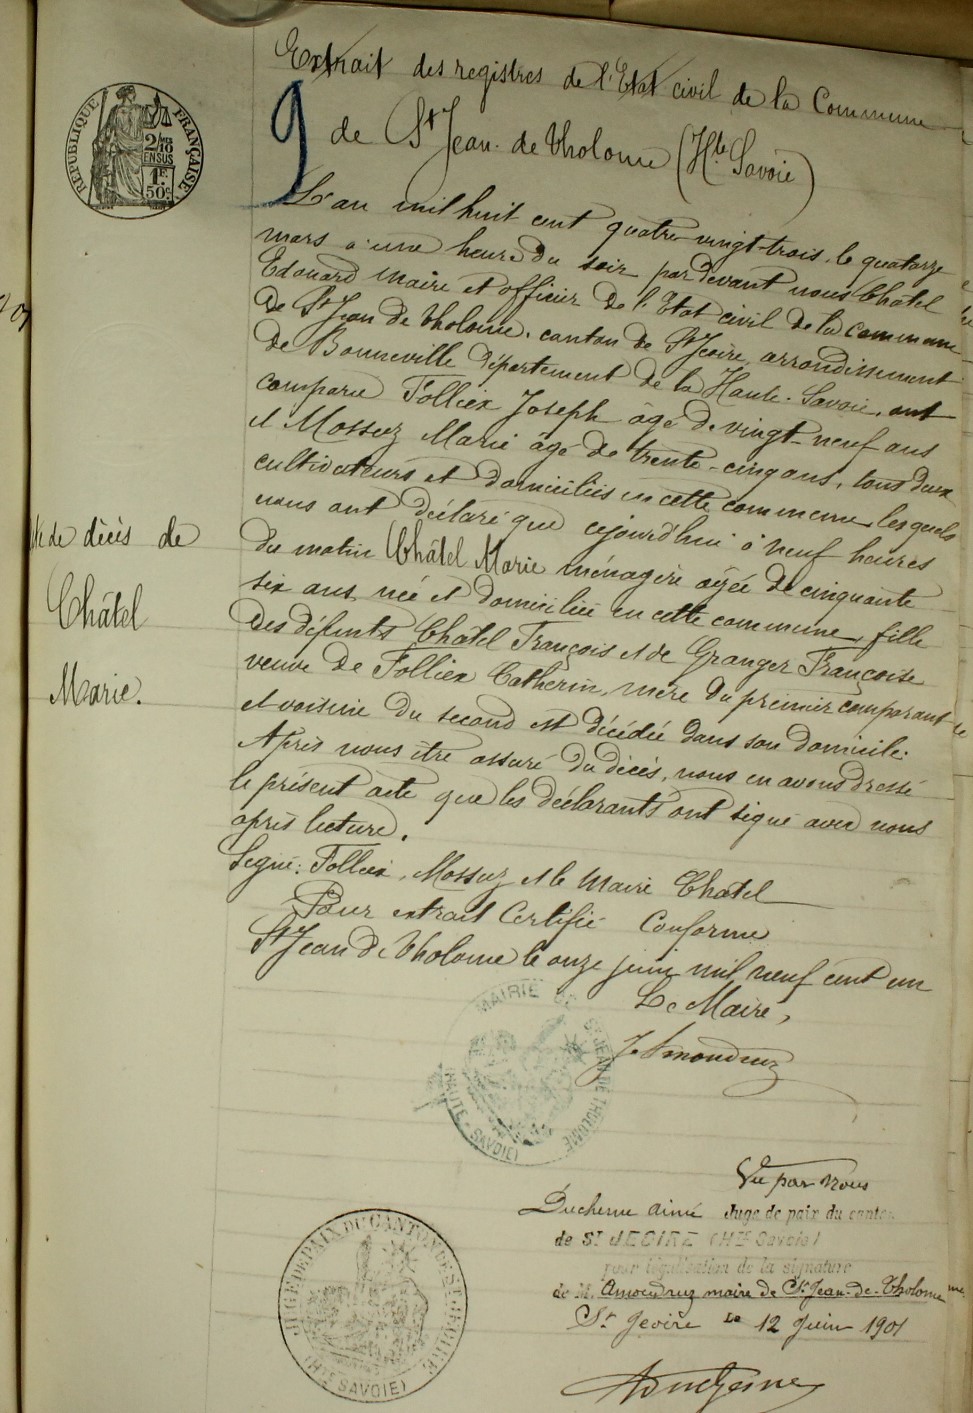 Extrait des registres de l'Etat civil de la Commune
9 de St Jean de Tholome (Hte Savoie)
RÉPUBLIQUE FRANÇAISE
2/10 EN SUS
1F 50c
L'an mil huit cent quatre-vingt-trois, le quatorze
mars à une heure du soir par devant nous Châtel
Edouard maire et officier de l'Etat civil de la commune
de St Jean de Tholome, canton de St Jeoire, arrondissement
de Bonneville département de la Haute-Savoie, ont
comparu Folliex Joseph âgé de vingt-neuf ans
et Mossuz Marie âgé de trente-cinq ans, tous deux
cultivateurs et domiciliés en cette commune, lesquels
nous ont déclaré que cejourd'hui à neuf heures
du matin Châtel Marie ménagère agée de cinquante
six ans née et domiciliée en cette commune, fille
des défunts Châtel François et de Granger Françoise
veuve de Folliex Catherin, mère du premier comparant
et voisine du second est décédée dans son domicile.
Après nous être assuré du décès, nous en avons dressé
le présent acte que les déclarants ont signé avec nous
après lecture.
Signé: Folliex, Mossuz et le Maire Châtel
Pour extrait Certifié Conforme
St Jean de Tholome le onze juin mil neuf cent un
Le Maire,
J. Amoudruz
de décès de
Châtel
Marie.
MAIRIE DE ST JEAN DE THOLOME
(HAUTE-SAVOIE)
Vu par nous
Duchesne aimé Juge de paix du canton
de ST JEOIRE (Hte Savoie)
pour légalisation de la signature
de M. Amoudruz maire de St Jean-de-Tholome
St Jeoire Le 12 Juin 1901
JUGE DE PAIX DU CANTON DE ST JEOIRE
(HTE SAVOIE)
Duchesne